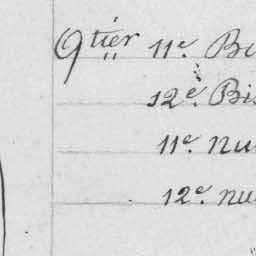 Qtier 11e. Bi
12e. Bis
11e. nu
12e. nu